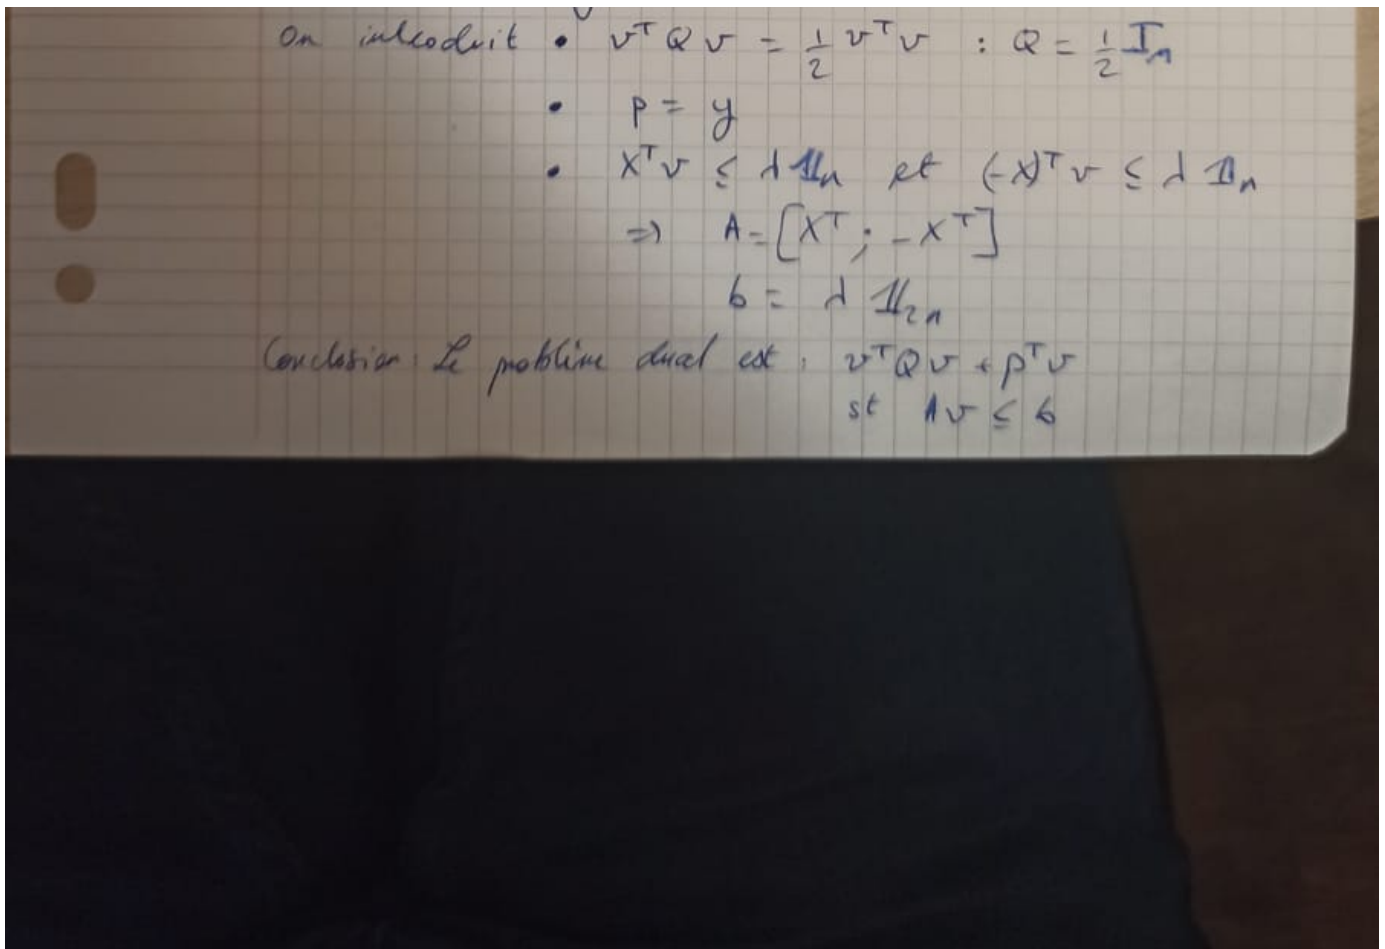 On introduit • vᵀ Q v = 1/2 vᵀ v : Q = 1/2 Iₙ
• p = y
• Xᵀ v ≤ λ 𝟙ₙ et (-X)ᵀ v ≤ λ 𝟙ₙ
=> A = [Xᵀ ; -Xᵀ]
b = λ 𝟙₂ₙ
Conclusion : Le problème dual est : vᵀ Q v + pᵀ v
st A v ≤ b